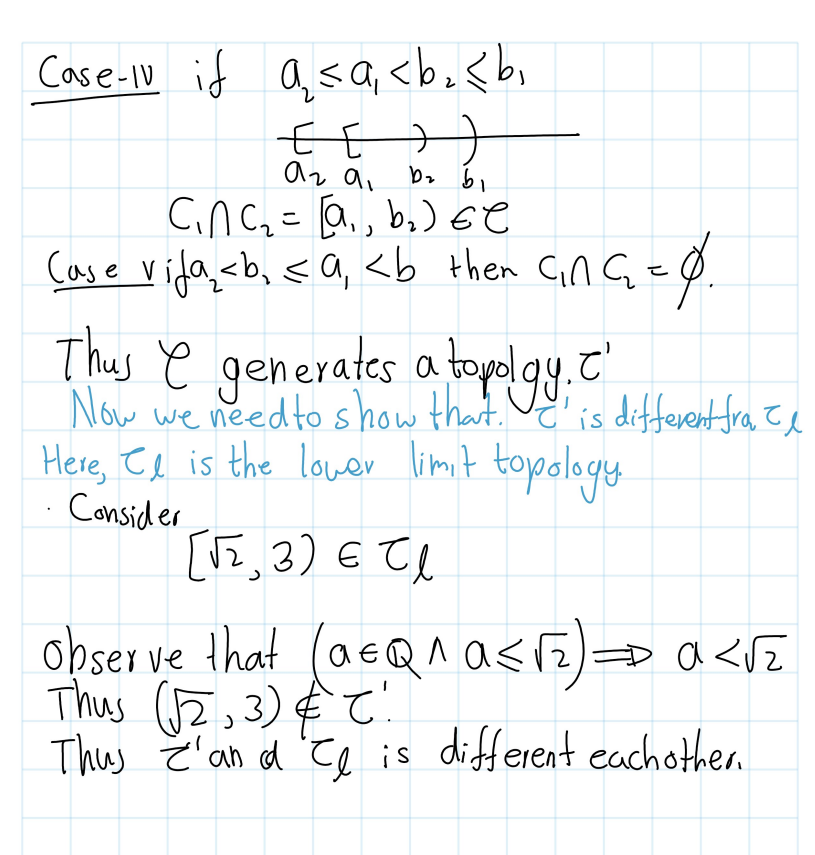 Case-IV if a₂ ≤ a₁ < b₂ ≤ b₁
a₂ a₁ b₂ b₁
C₁∩C₂ = [a₁, b₂) ∈ 𝒞
Case v if a₂<b₂ ≤ a₁ < b then C₁∩C₂ = ∅.
Thus 𝒞 generates a topolgy. τ'
Now we need to show that. τ' is different fra, τₗ
Here, τₗ is the lower limit topology.
· Consider
[√2, 3) ∈ τₗ
Observe that (a ∈ ℚ ∧ a ≤ √2) ⟹ a < √2
Thus (√2, 3) ∉ τ'.
Thus τ' and τₗ is different eachother.